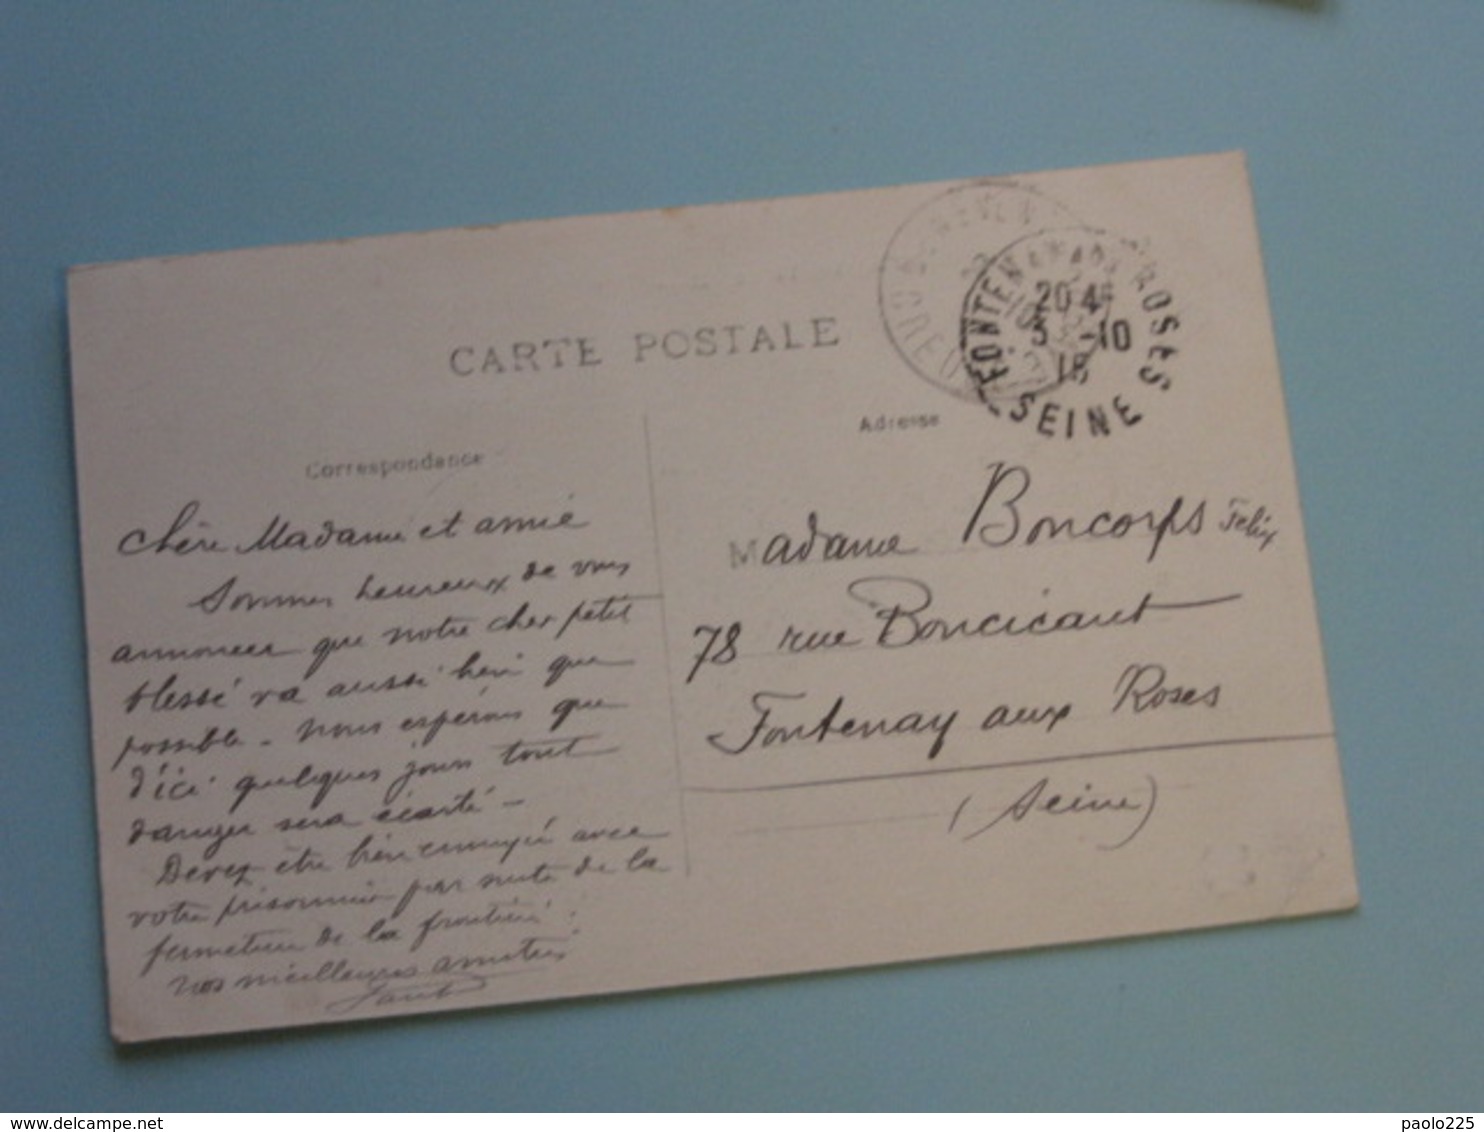 CARTE POSTALE
Correspondance
Adresse
FONTENAY AUX ROSES
20 45
5 - 10
15
SEINE
chère Madame et amie
Sommes heureux de vous
annoncer que notre cher petit
blessé va aussi bien que
possible - nous espérons que
d'ici quelques jours tout
danger sera écarté -
Devez être bien ennuyée avec
votre prisonnier par suite de la
fermeture de la frontière.
nos meilleures amitiés
Madame Boncorps Félix
78 rue Boncicaut
Fontenay aux Roses
(Seine)
delcampe.net
paolo225